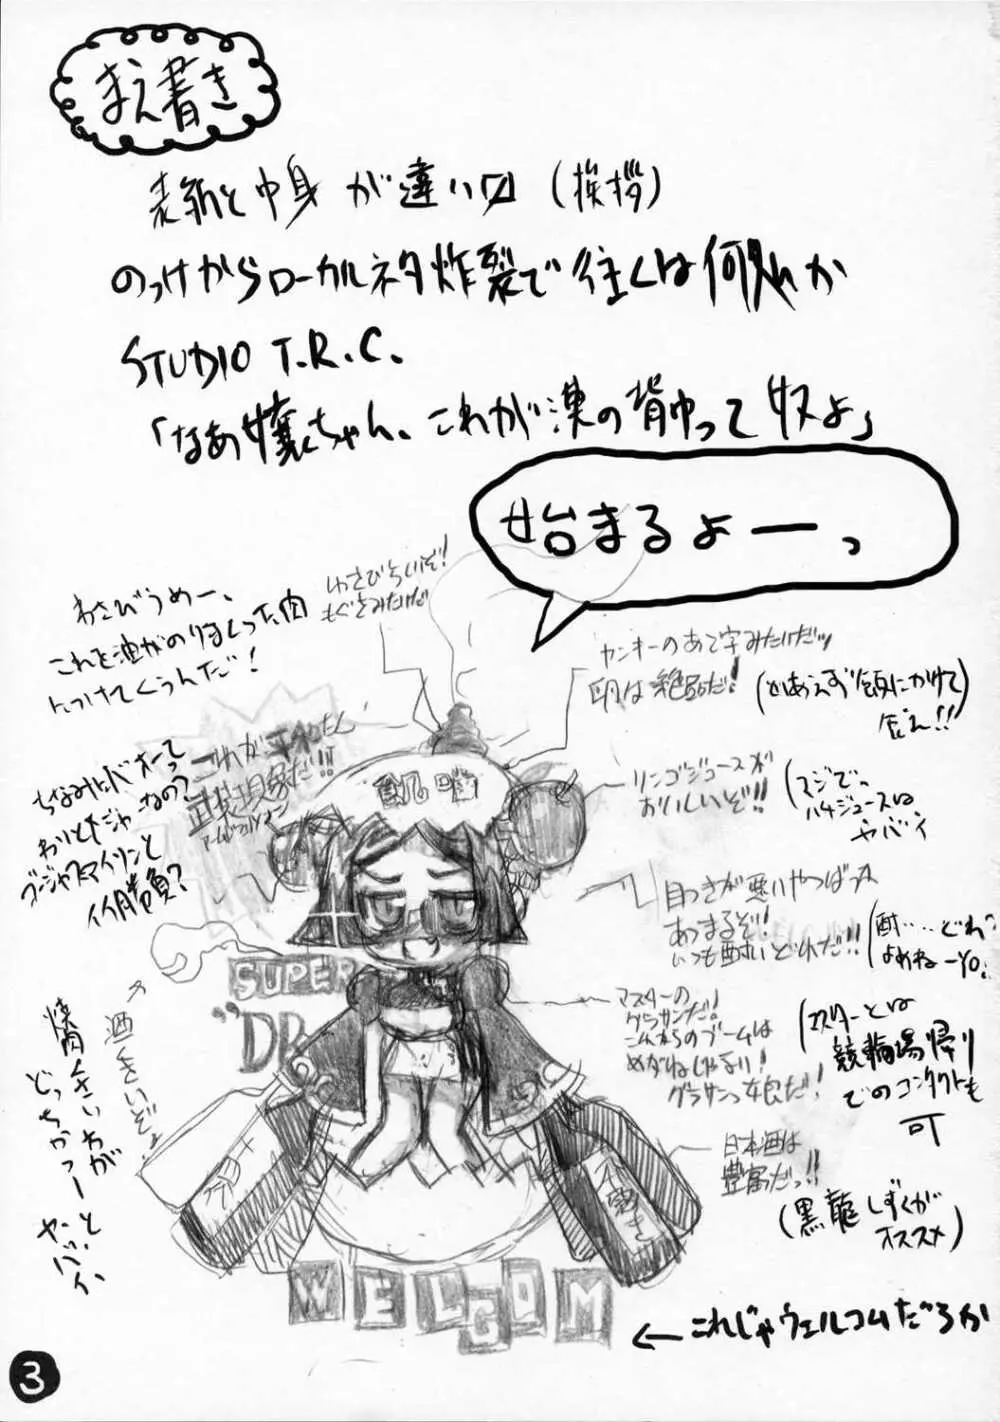 まえ書き
表紙と中身が違い〼(挨拶)
のっけからローカルネタ炸裂で往くは何処か
STUDIO T.R.C.
「なあ嬢ちゃん、これが漢の背中って奴よ」
始まるよーっ
わさびらいいぞ!
もぐさみたいだ
わさびうめー、
これを油がのりまくった肉
につけてくうんだ!
ヤンキーのあて字みたいだッ
卵は絶品だ!
(とりあえず頭にかけて
これが平和たん
武装現象だ!!
ちなみにバオーって
わりとだジャなの?
ゴージャスアイリンと
イイ勝負?
リンゴジュースが
おいしいぞ!!
(マジで。
ハチジュースは
ヤバイ
目つきが悪いやつばっか
あつまるぞ!
いつも酔いどれだ!!
(酎……どれ?
よめねーYO.
SUPER
"DR
マスターの
グラサンだ!
これからのブームは
めがねじゃない!
グラサンっ娘だ!
(マスターとは
競輪場帰り
でのコンタクトも
可
酒くさいぞ
焼肉くさい方が
どっちかっつーと
ヤバイ
日本酒は
豊富だっ!!
(黒龍しずくが
オススメ)
WELCOM
←これじゃウェルコムだろうか
3